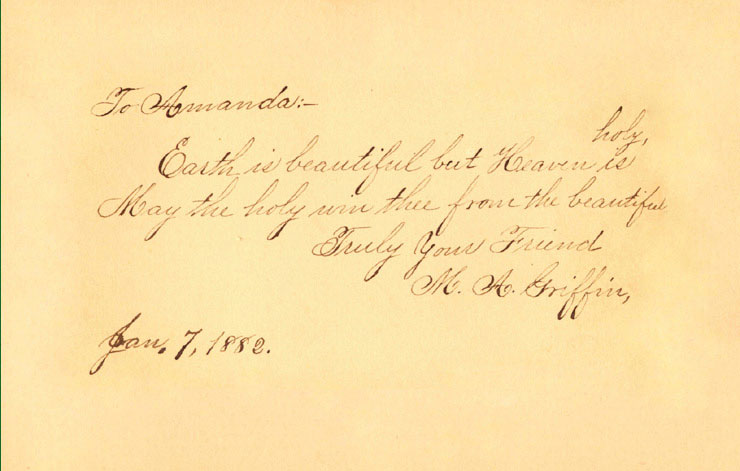 To Amanda:-
holy,
Earth is beautiful but Heaven is
May the holy win thee from the beautiful
Truly Your Friend
M. A. Griffin,
Jan. 7, 1882.